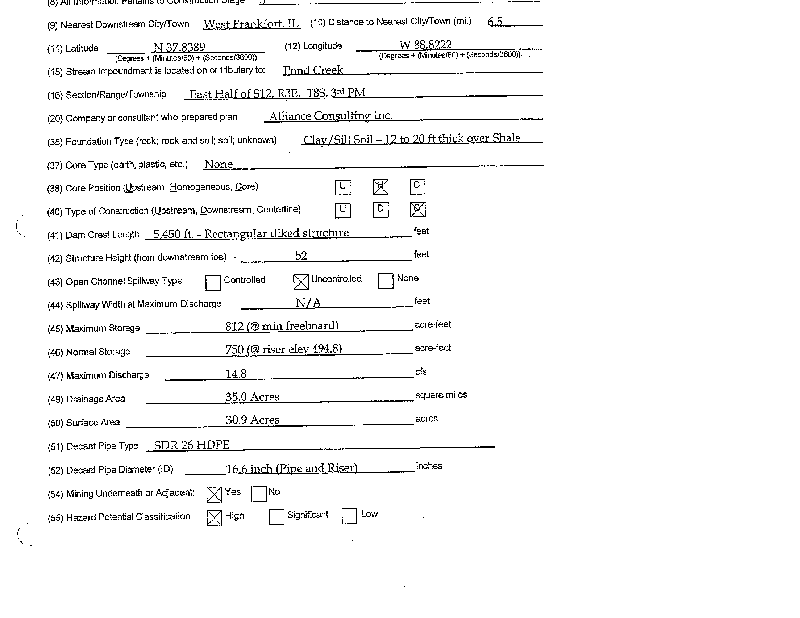 (8) All Information Pertains to Construction Stage 5
(9) Nearest Downstream City/Town West Frankfort, IL (10) Distance to Nearest City/Town (mi.) 6.5
(11) Latitude N 37.8389 (12) Longitude W 88.8222
(Degrees + (Minutes/60) + (Seconds/3600)) (Degrees + (Minutes/60) + (Seconds/3600))
(15) Stream Impoundment is located on or tributary to: Pond Creek
(16) Section/Range/Township East Half of S12, R3E, T8S, 3rd PM
(20) Company or consultant who prepared plan Alliance Consulting Inc.
(35) Foundation Type (rock; rock and soil; soil; unknown) Clay/Silt Soil – 12 to 20 ft thick over Shale
(37) Core Type (earth, plastic, etc.) None
(38) Core Position (Upstream, Homogeneous, Core) U H C
(40) Type of Construction (Upstream, Downstream, Centerline) U D C
(41) Dam Crest Length 5,450 ft. - Rectangular diked structure feet
(42) Structure Height (from downstream toe) - 52 feet
(43) Open Channel Spillway Type Controlled Uncontrolled None
(44) Spillway Width at Maximum Discharge N/A feet
(45) Maximum Storage 812 (@ min freeboard) acre-feet
(46) Normal Storage 750 (@ riser elev 494.8) acre-feet
(47) Maximum Discharge 14.8 cfs
(49) Drainage Area 35.0 Acres square miles
(50) Surface Area 30.9 Acres acres
(51) Decant Pipe Type SDR 26 HDPE
(52) Decant Pipe Diameter (ID) 16.6 inch (Pipe and Riser) inches
(54) Mining Underneath or Adjacent Yes No
(55) Hazard Potential Classification High Significant Low